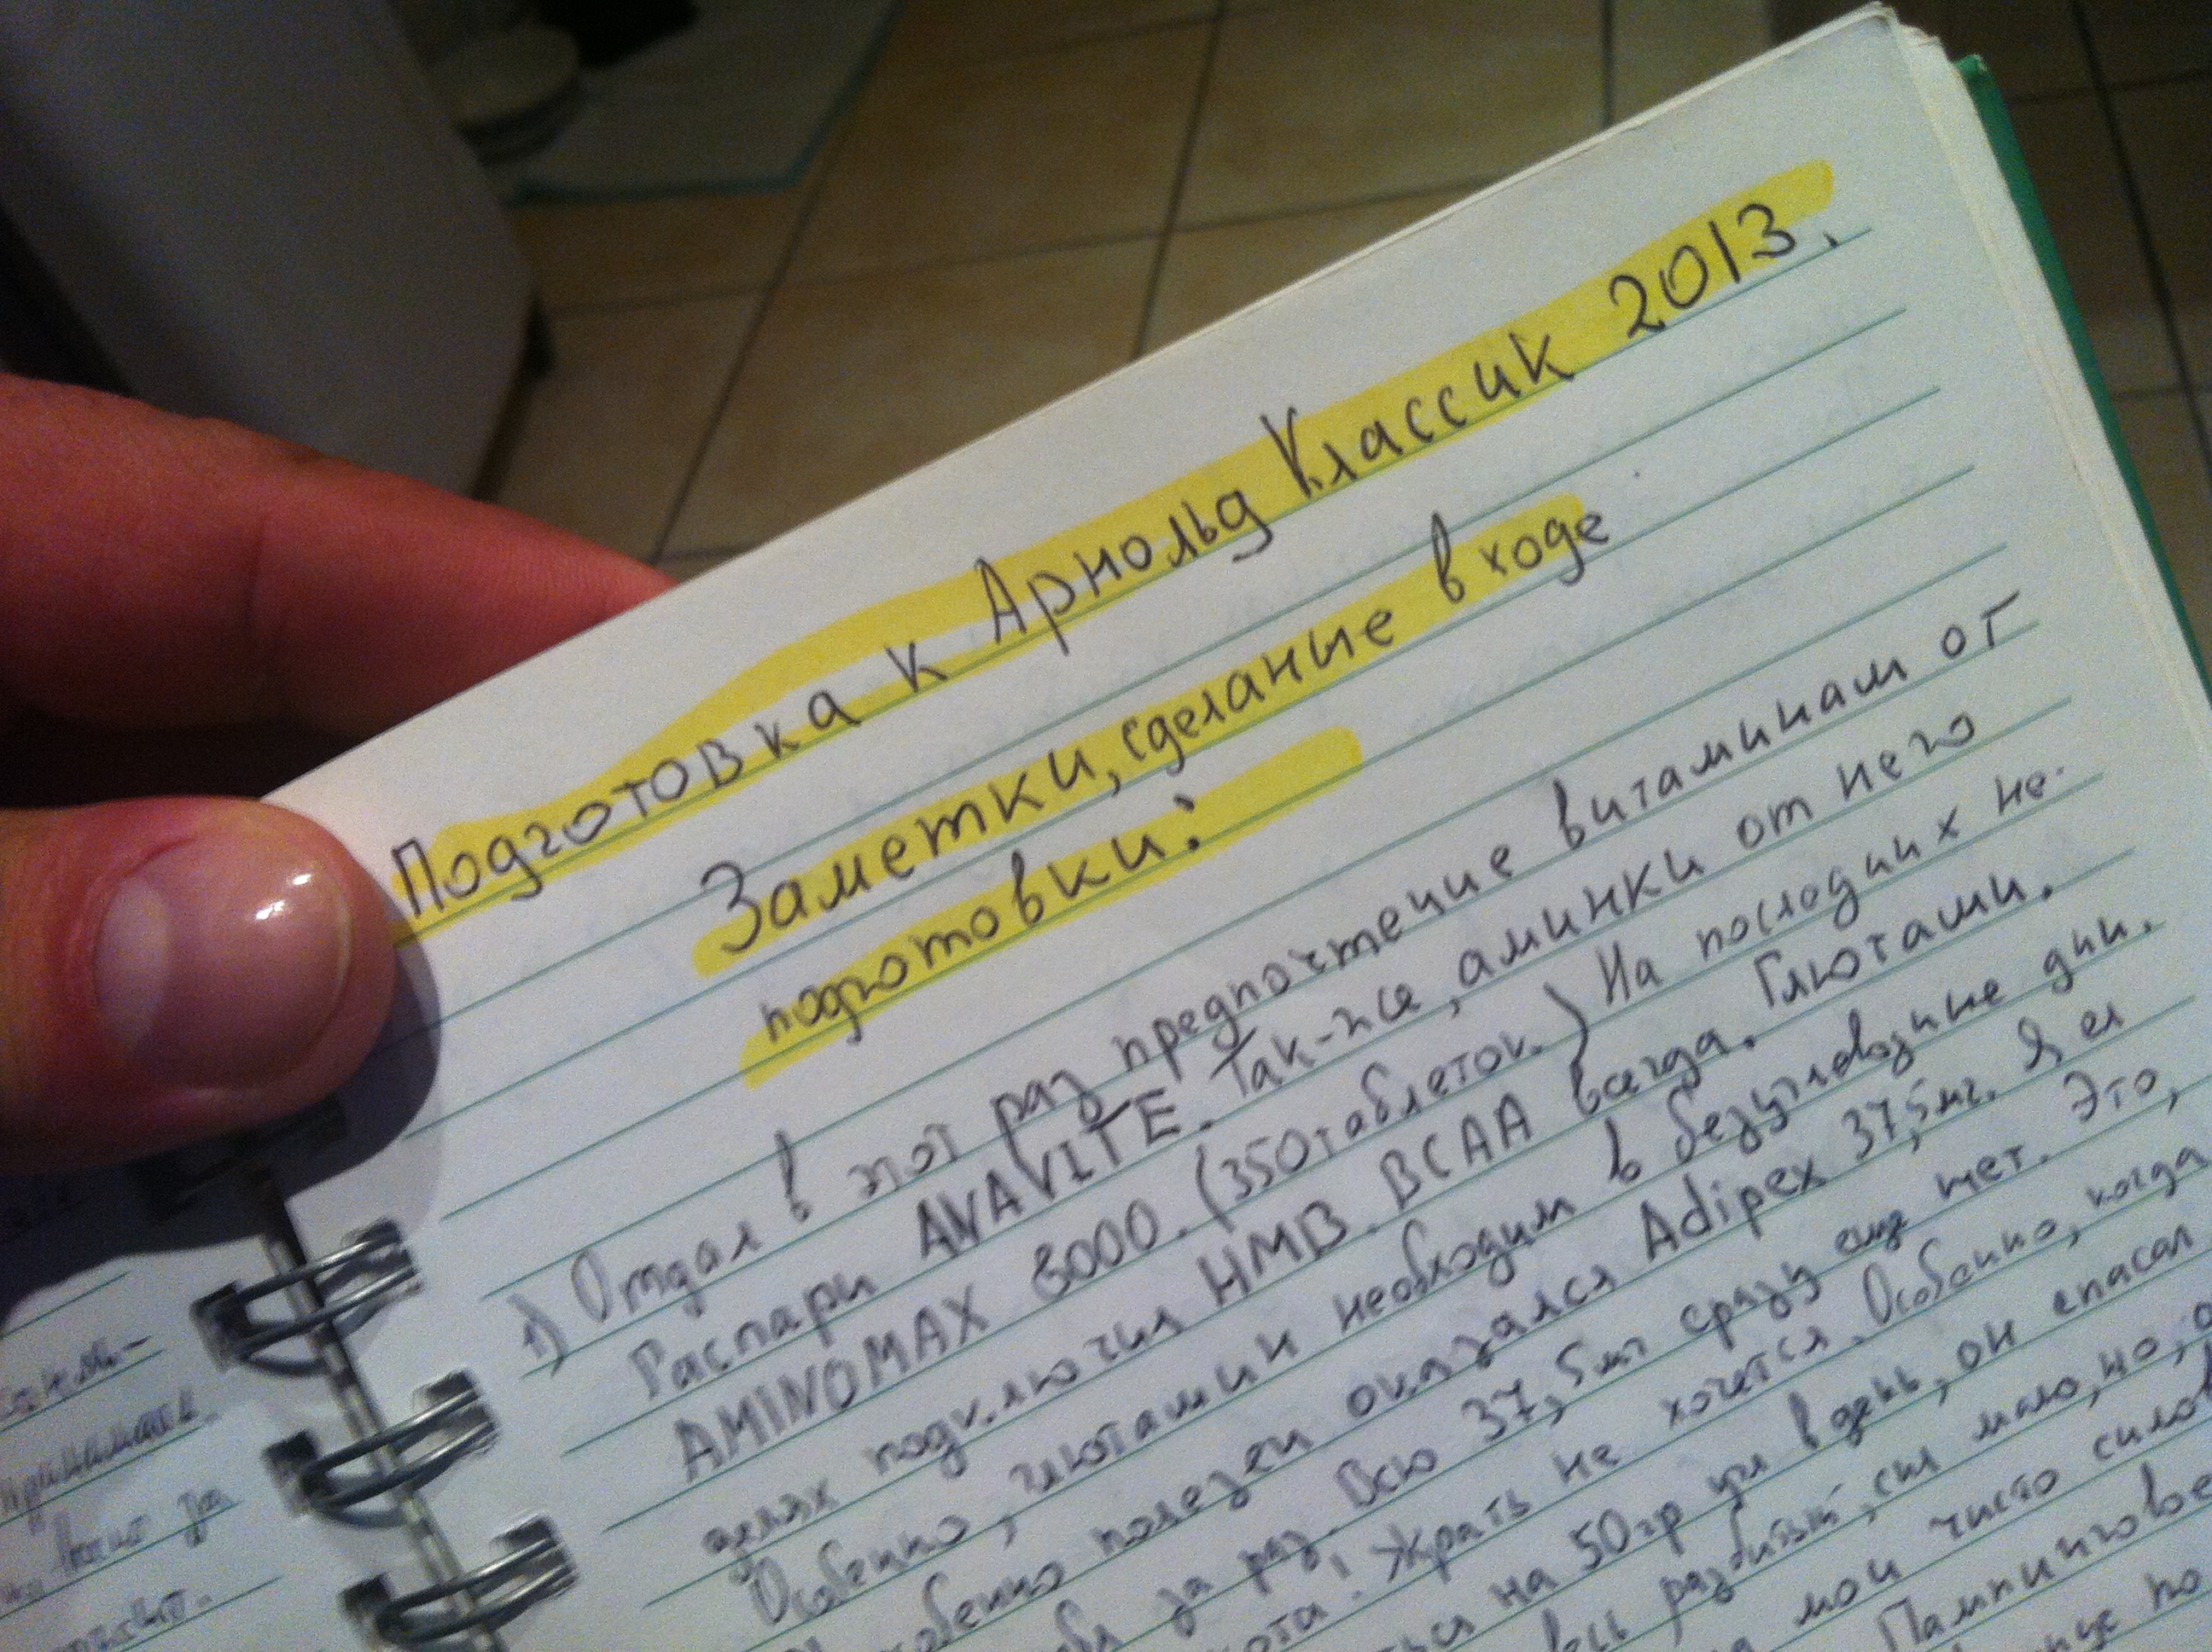 Подготовка к Арнольд Классик 2013.
Заметки, сделаные в ходе
подготовки:
1) Отдал в этот раз предпочтение витаминам от
Гаспари AVAVITE. Так-же, аминки от него
AMINOMAX 8000. (350 таблеток.) На последних не-
делях подключил HMB. BCAA всегда. Глютамин.
Особенно, глютамин необходим в безуглеводные дни.
полезен оказался Adipex 37,5мг. Я ел
за раз. Всю 37,5мг сразу ещё нет. Это,
Жрать не хочется. Особенно, когда
на 50гр угл в день, он спасал
весь разбитый, сил мало, но,
мои чисто силов
Пампингов